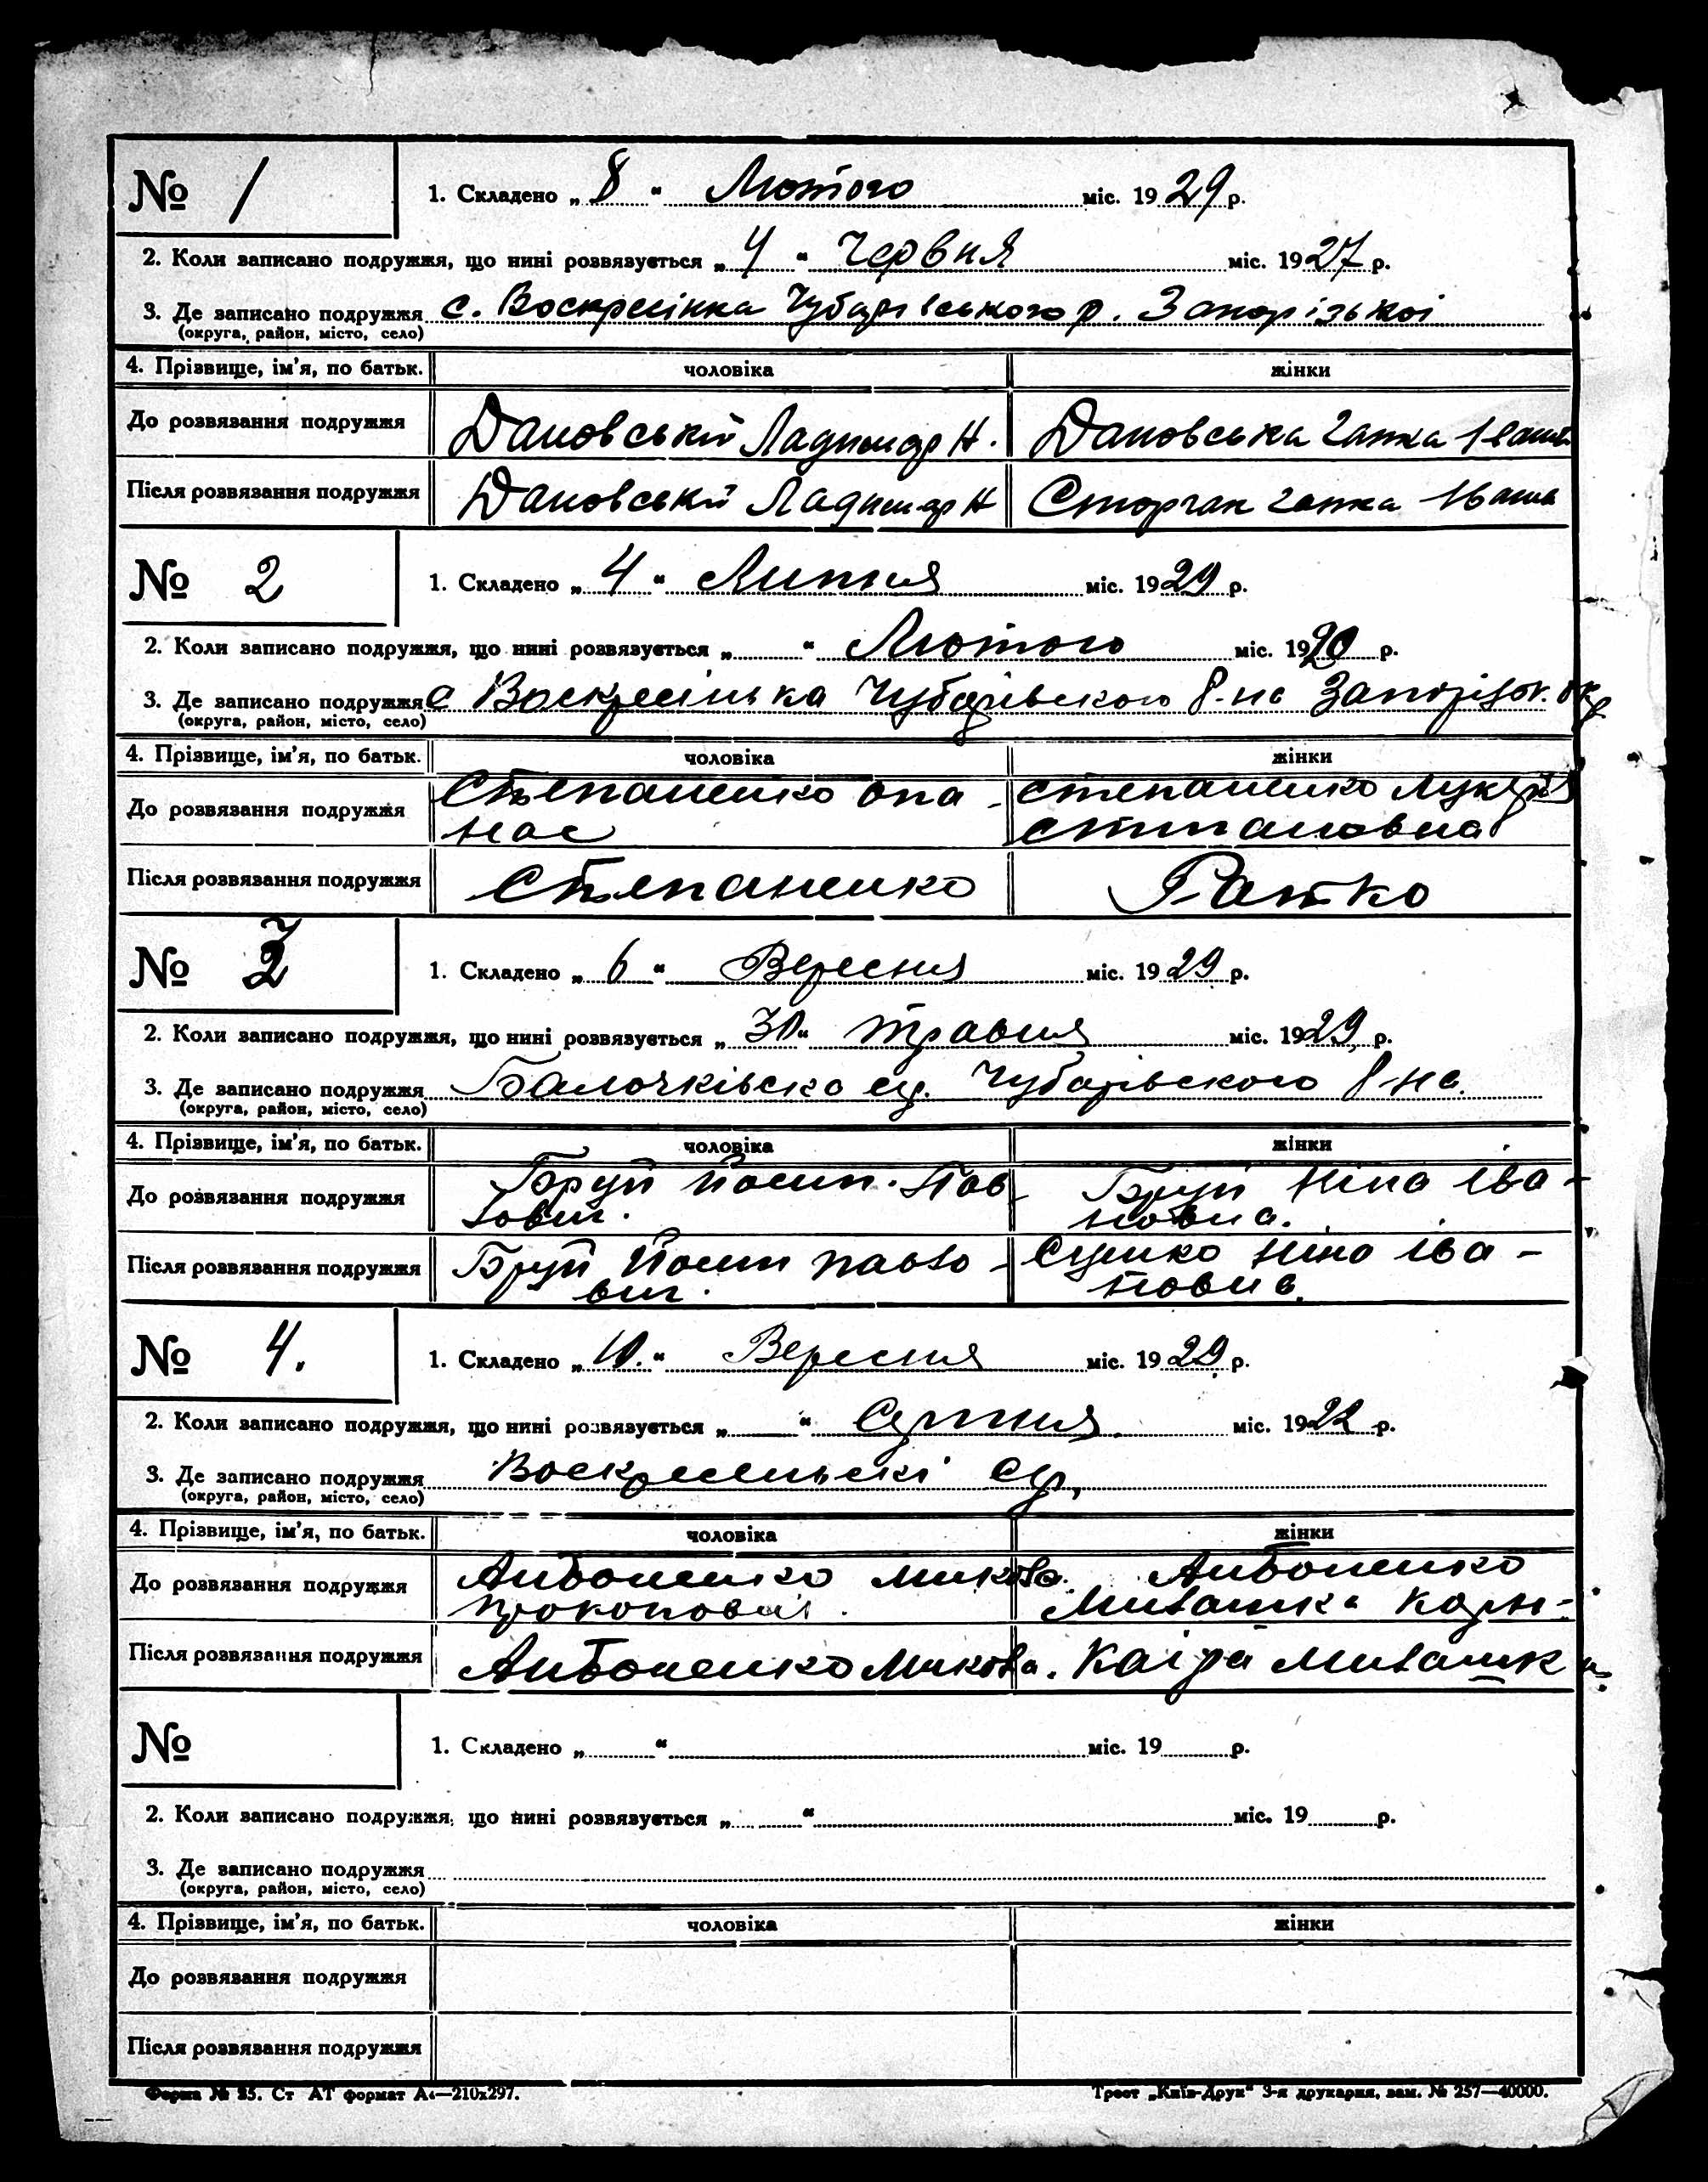 № 1
1. Складено „ 8 “ Лютого міс. 1929 р.
2. Коли записано подружжя, що нині розвязується „ 4 “ Червня міс. 1927 р.
3. Де записано подружжя с. Воскресінка Чубарівського р. Запорізькоі
(округа, район, місто, село)
4. Прізвище, ім’я, по батьк. чоловіка жінки
До розвязання подружжя Дановський Ладимар Н. Дановська Ганка Іванів
Після розвязання подружжя Дановський Ладимар Н Сторчак Ганка Іванів
№ 2
1. Складено „ 4 “ Липня міс. 1929 р.
2. Коли записано подружжя, що нині розвязується „ “ Лютого міс. 1920 р.
3. Де записано подружжя с Воскресінька Чубарівського р-на Запорізьк. окр
(округа, район, місто, село)
4. Прізвище, ім’я, по батьк. чоловіка жінки
До розвязання подружжя Степаненко Опа- Степаненко Лукерія
нас Степановна
Після розвязання подружжя Степаненко Ратко
№ 3
1. Складено „ 6 “ Вересня міс. 1929 р.
2. Коли записано подружжя, що нині розвязується „ 30 “ травня міс. 1929 р.
3. Де записано подружжя Балочківська с/р. Чубарівського р-на.
(округа, район, місто, село)
4. Прізвище, ім’я, по батьк. чоловіка жінки
До розвязання подружжя Бруй Йосип. Пав- Бруй Ніна Іва-
лович. новна.
Після розвязання подружжя Бруй Йосип Павло- Сушко Ніна Іва-
вич. новна.
№ 4.
1. Складено „ 10. “ Вересня міс. 1929 р.
2. Коли записано подружжя, що нині розвязується „ “ Серпня міс. 1922 р.
3. Де записано подружжя Воскресенські с/р,
(округа, район, місто, село)
4. Прізвище, ім’я, по батьк. чоловіка жінки
До розвязання подружжя Антоненко Микола. Антоненко
Прокопович. Милашка
Після розвязання подружжя Антоненко Микола. Каіра Милашка
№
1. Складено „ “ міс. 19 р.
2. Коли записано подружжя, що нині розвязується „ “ міс. 19 р.
3. Де записано подружжя
(округа, район, місто, село)
4. Прізвище, ім’я, по батьк. чоловіка жінки
До розвязання подружжя
Після розвязання подружжя
Форма № 25. Ст АТ формат А4—210х297. Трест „Київ-Друк“ 3-я друкарня, зам. № 257—40000.